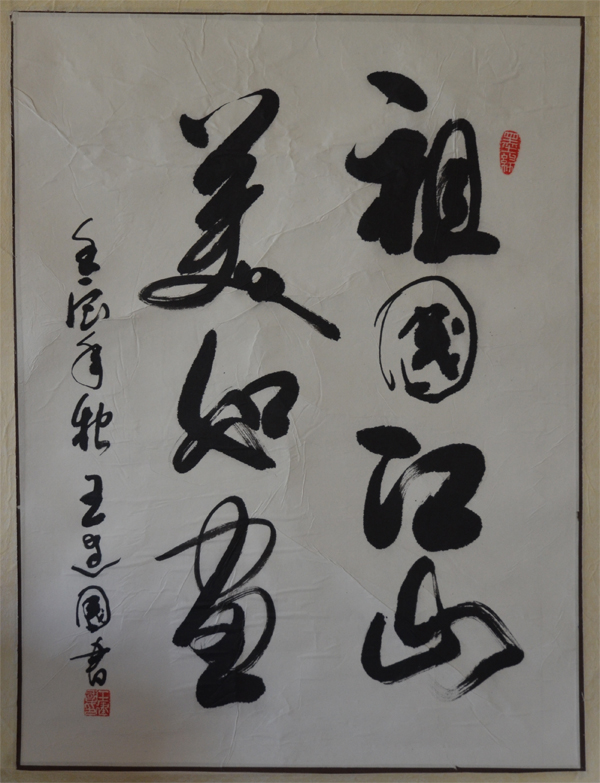 祖國江山
美如画
壬辰年秋王建國書